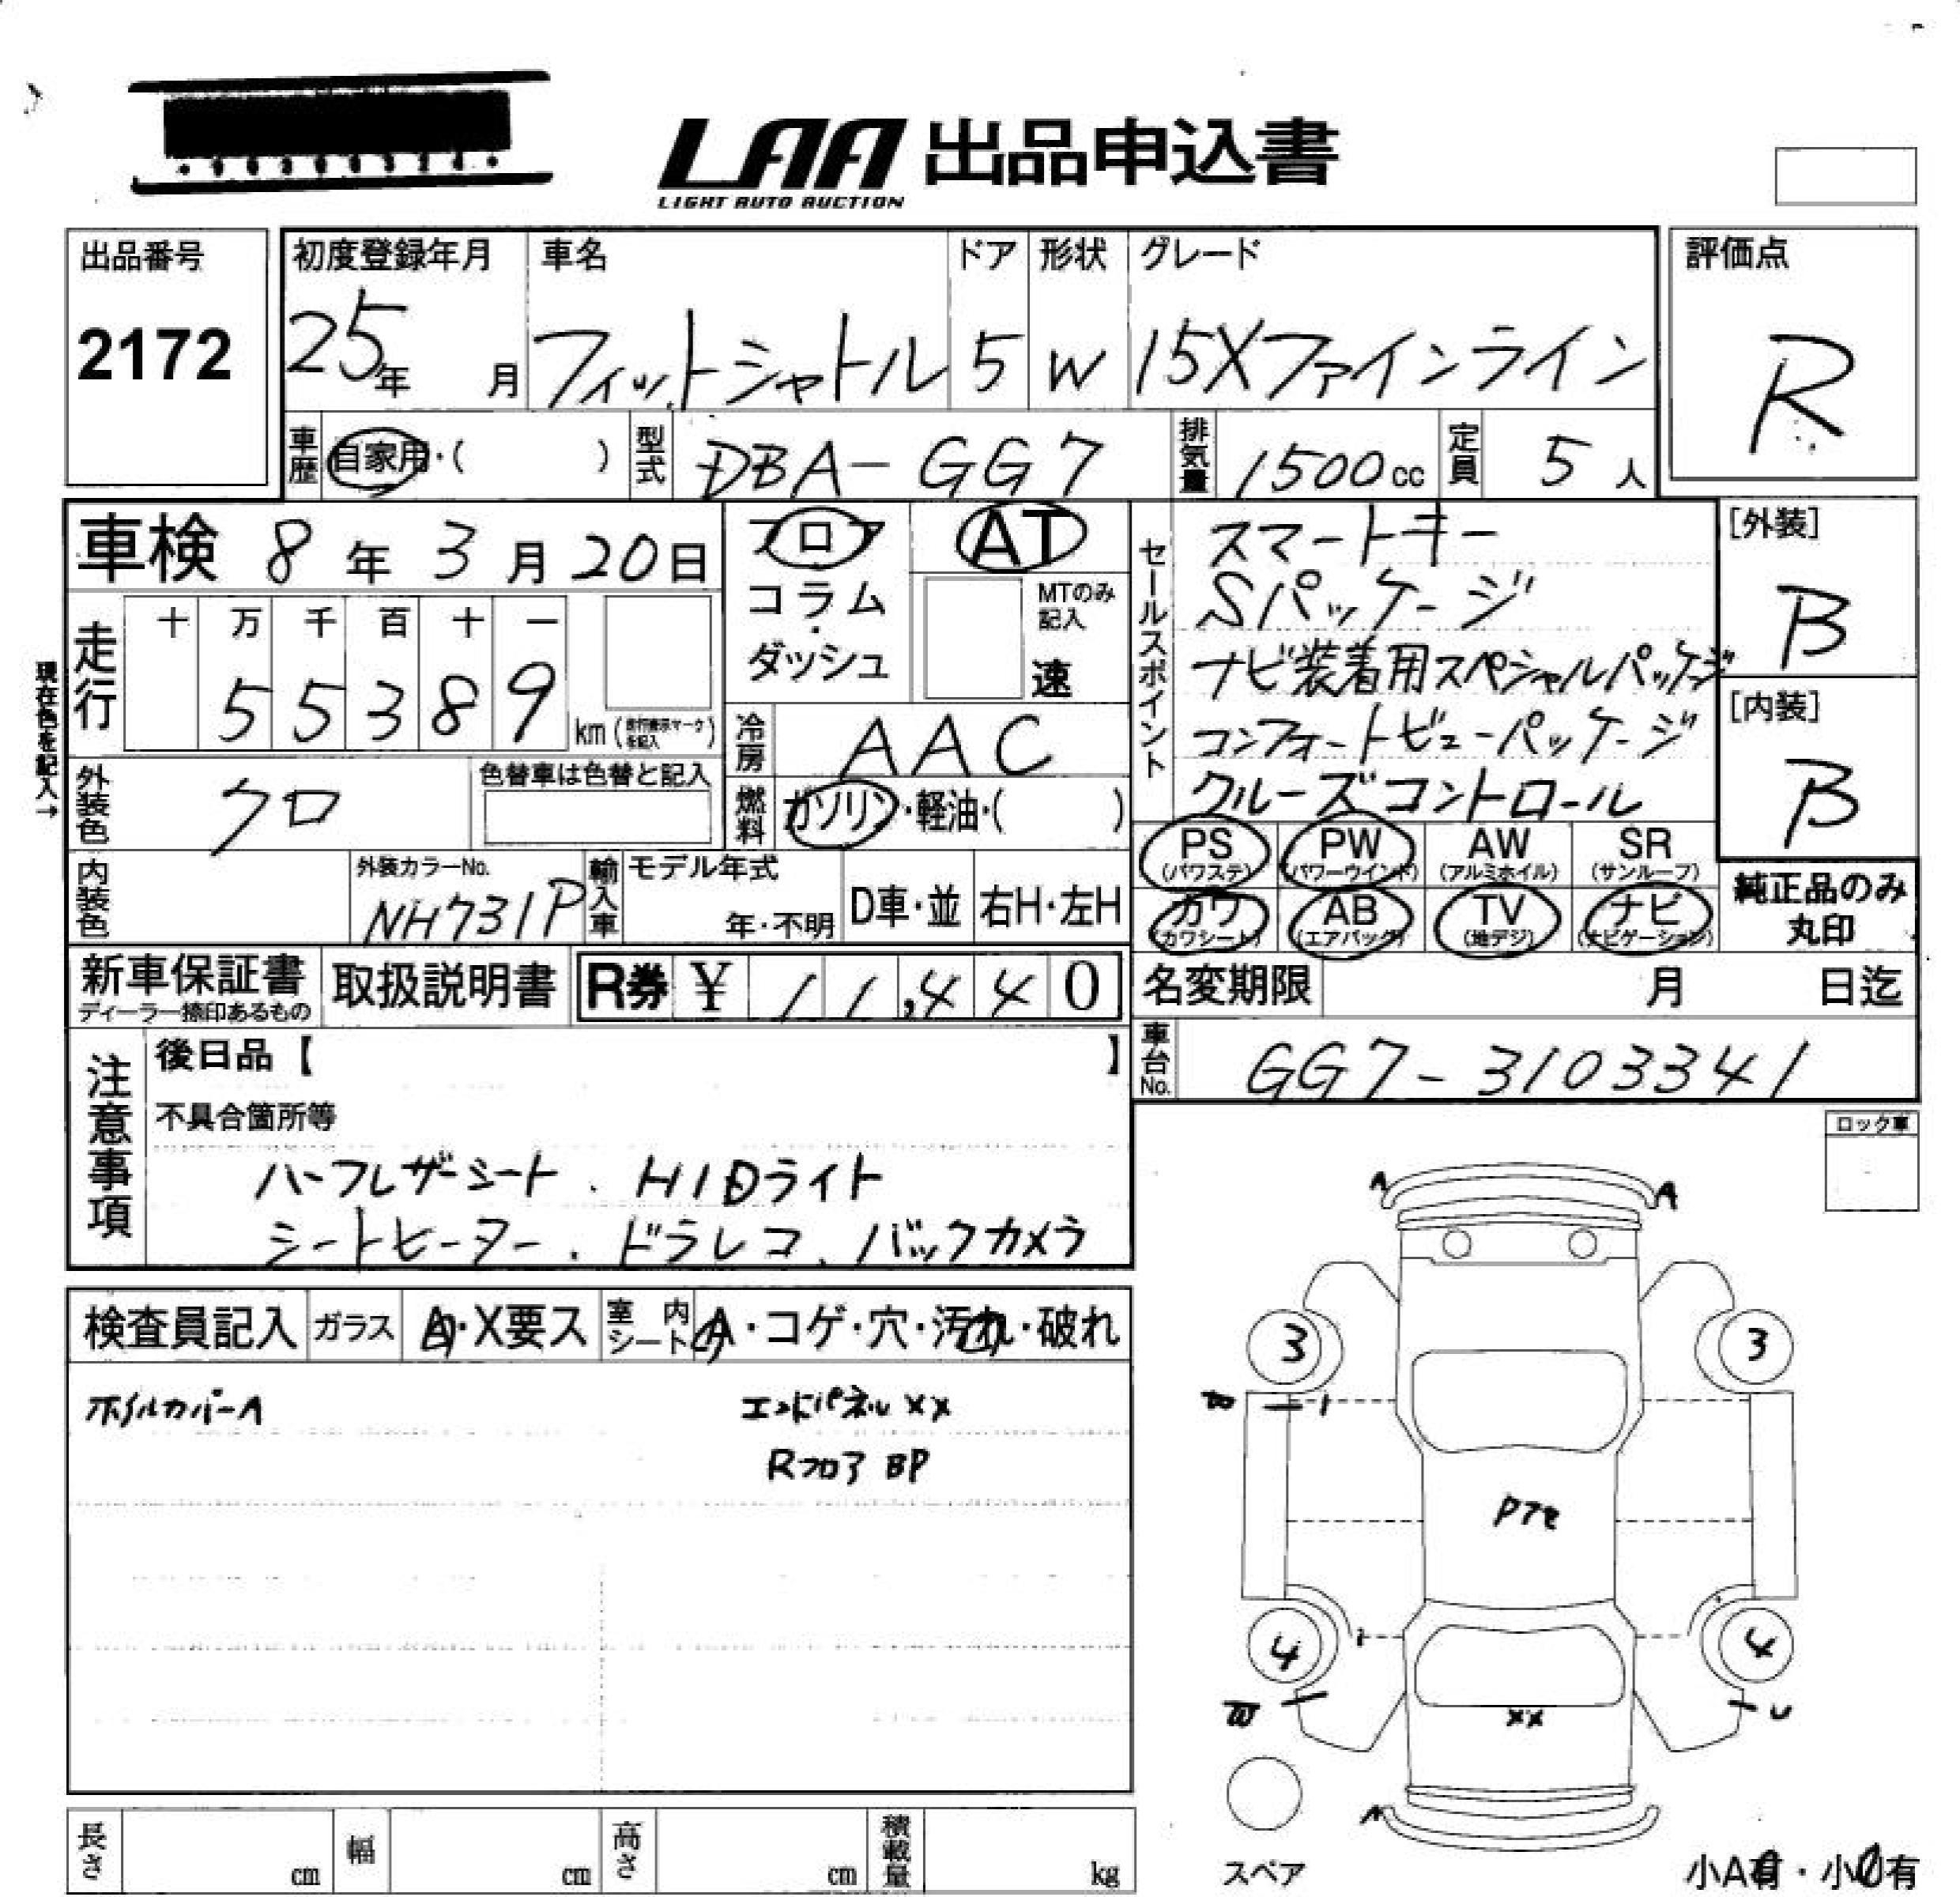 LAA 出品申込書
LIGHT AUTO AUCTION
出品番号
2172
初度登録年月
25年 月
車名
フィットシャトル
ドア
5
形状
W
グレード
15Xファインライン
評価点
R
車歴 自家用・( )
型式 DBA-GG7
排気量 1500cc
定員 5人
車検 8年3月20日
走行
十 万 千 百 十 一
5 5 3 8 9 km (走行表示マークを記入)
現在色を記入→
外装色 クロ
色替車は色替と記入
内装色
外装カラーNo.
NH731P
フロア
コラム
ダッシュ
AT
MTのみ記入
速
冷房 AAC
燃料 ガソリン・軽油・( )
輸入車
モデル年式
年・不明
D車・並
右H・左H
セールスポイント
スマートキー
Sパッケージ
ナビ装着用スペシャルパッケージ
コンフォートビューパッケージ
クルーズコントロール
[外装]
B
[内装]
B
PS (パワステ)
PW (パワーウインド)
AW (アルミホイル)
SR (サンルーフ)
カワ (カワシート)
AB (エアバッグ)
TV (地デジ)
ナビ (ナビゲーション)
純正品のみ
丸印
新車保証書
ディーラー捺印あるもの
取扱説明書
R券 ¥ 11,440
名変期限 月 日迄
車台No. GG7-3103341
注意事項
後日品【 】
不具合箇所等
ハーフレザーシート.HIDライト
シートヒーター.ドラレコ.バックカメラ
ロック車
検査員記入
ガラス A・X要ス
室内シート A・コゲ・穴・汚れ・破れ
ホイルカバーA
エンドパネルXX
Rフロア BP
A A
3 3
4 4
U
XX
スペア
小A有・小U有
長さ cm
幅 cm
高さ cm
積載量 kg